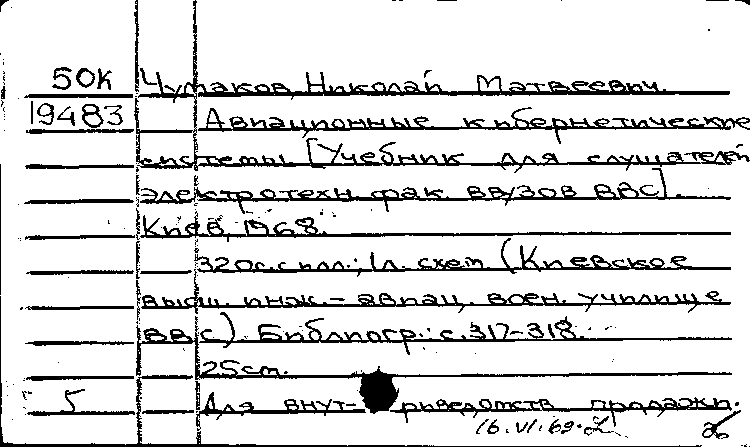 50К Чумаков, Николай Матвеевич.
19483 Авиационные кибернетические
системы [Учебник для слушателей
электротехн. фак. ВВУЗОВ ВВС].
Киев, 1968.
320с. с илл.; 1л. схем (Киевское
высш. инж.-авиац. воен. училище
ВВС). Библиогр.: с. 317-318.
25см.
5 Для внут- риведомств продажи.
16.VI.69.